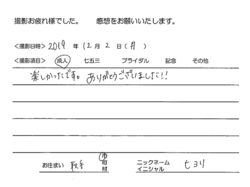 撮影お疲れ様でした。 感想をお願いいたします。
<撮影日時> 2019 年 12 月 2 日 (月)
<撮影項目> 成人 七五三 ブライダル 記念 その他
楽しかったです。ありがとうございました!!
お住まい 取手 市 町 村 ニックネーム イニシャル